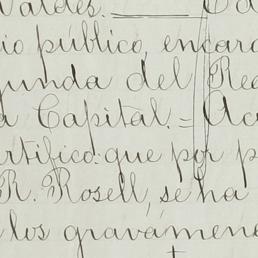 Valdés.
io público, encar
gunda del Re
a Capital.= Ac
rtifico: que por p
R. Rosell, se ha
los gravamene